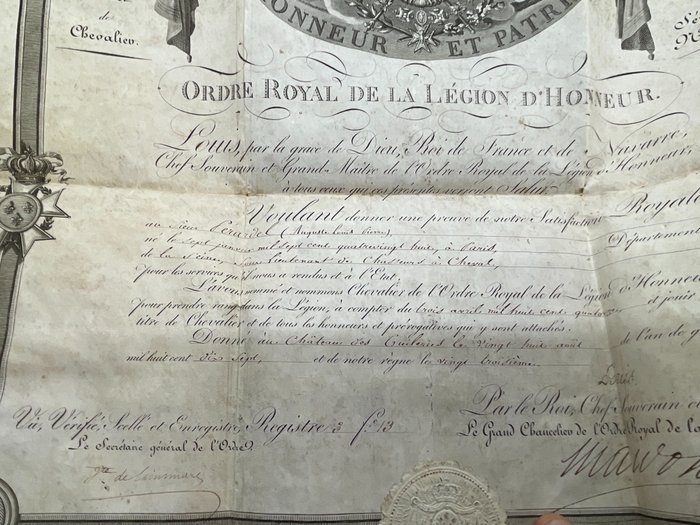 de
Chevalier.
HONNEUR ET PATRI
ORDRE ROYAL DE LA LÉGION D'HONNEUR.
Louis, par la grace de Dieu, Roi de France et de Navarre,
Chef Souverain et Grand-Maître de l'Ordre Royal de la Légion d'Honneur,
à tous ceux qui ces présentes verront Salut.
Voulant donner une preuve de notre Satisfaction Royale
au Sieur (Auguste Louis Pierre)
né le sept janvier mil sept cent quatrevingt huit, à Paris, Département
de la Seine, Sous Lieutenant de Chasseurs à Cheval,
pour les services qu'il nous a rendus et à l'Etat,
L'avons nommé et nommons Chevalier de l'Ordre Royal de la Légion d'Honneu
pour prendre rang dans la Légion, à compter du trois avril mil huit cent et jouir
titre de Chevalier et de tous les honneurs et prérogatives qui y sont attachés.
Donné au Château des Tuileries le vingt huit août de l'an de g
mil huit cent dix sept, et de notre règne le vingt troisième.
Louis
Vu, Vérifié, Scellé et Enregistré, Registre 3 f.° 13
Par le Roi, Chef Souverain
Le Secrétaire général de l'Ordre,
Le Grand Chancelier de l'Ordre Royal de la